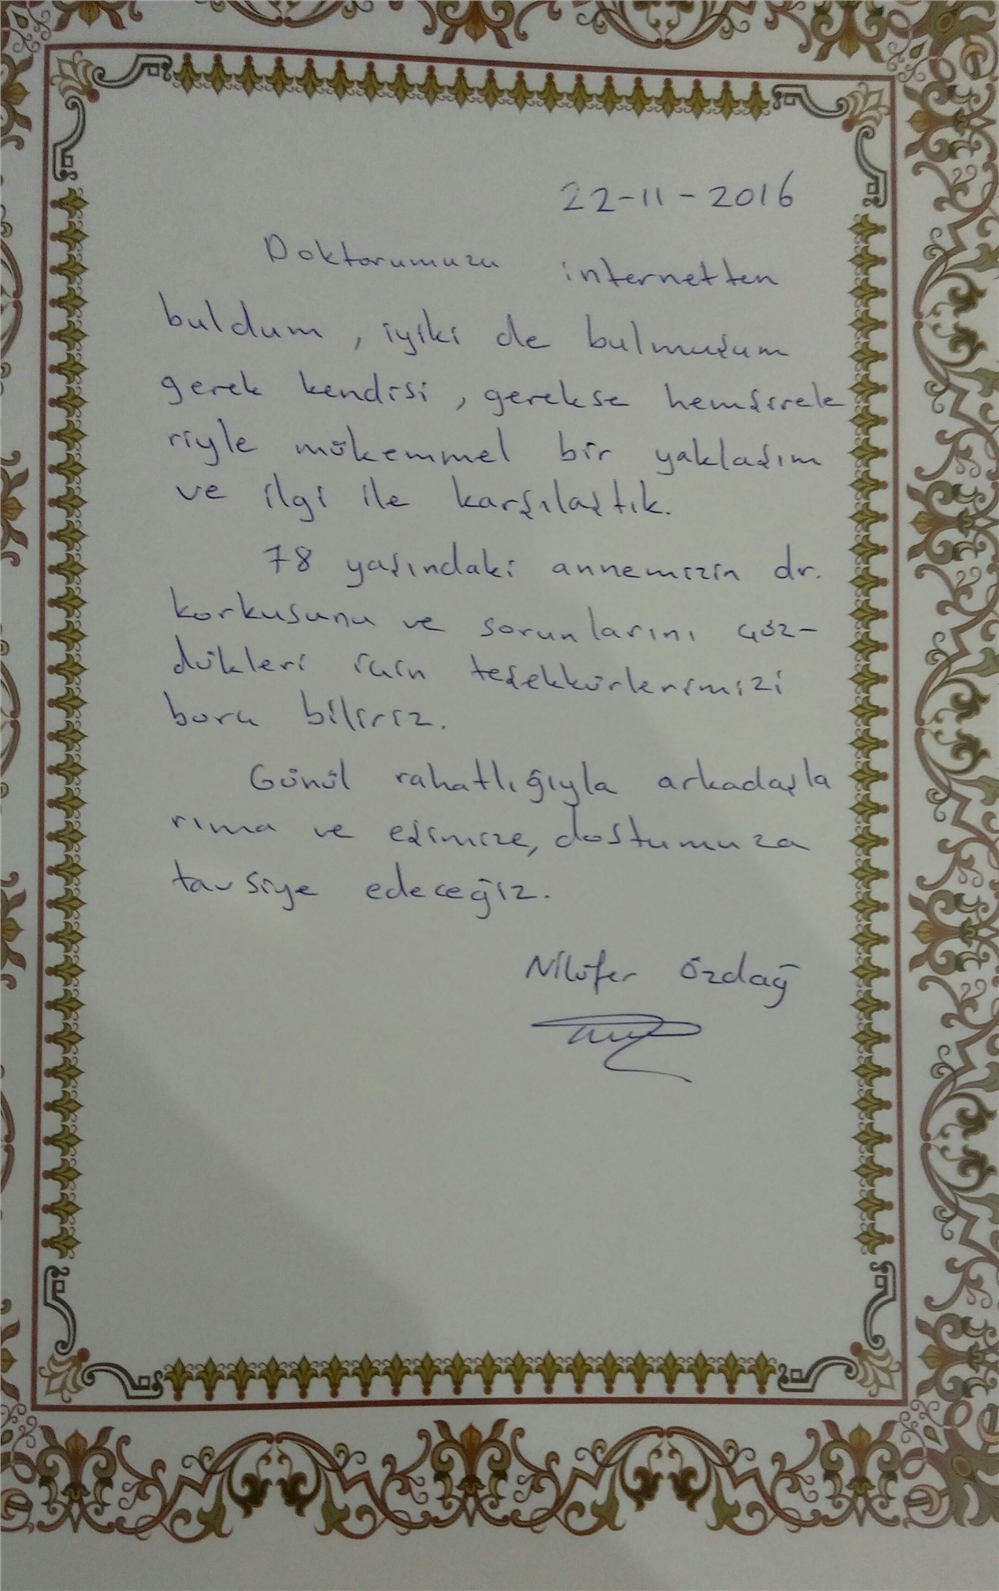 22-11-2016
Doktorumuzu internetten
buldum, iyiki de bulmuşum
gerek kendisi, gerekse hemşirele
riyle mükemmel bir yaklaşım
ve ilgi ile karşılaştık.
78 yaşındaki annemizin dr.
korkusunu ve sorunlarını çöz-
dükleri için teşekkürlerimizi
borç biliriz.
Günül rahatlığıyla arkadaşla
rıma ve eşimize, dostumuza
tavsiye edeceğiz.
Nilüfer Özdağ